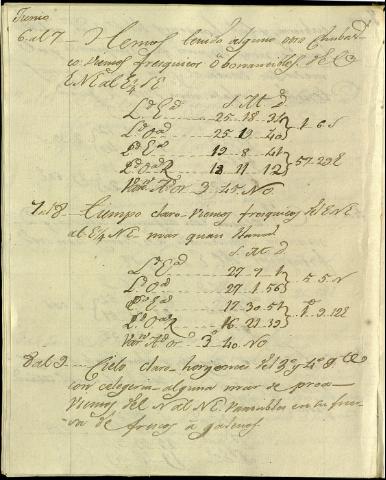 Junio
6 al 7 - Hemos tenido alguno otro Chubas-
co vientos fresquitos o bonancibles del
ENE al E¼SE
S. M. d.
Ld Ed 25..18..34
Ld Od 25..11..40 } 1..6 S
Ld Ed 12..8..41
Ld Od R 13..11..12 } 57..29 E
Varn Ador 3..45 No.
7 al 8 - Tiempo claro vientos fresquitos del ENE
al E¼NE mar quasi llana
S. M. d.
Ld Ed 27..7..1
Ld Od 27..1..56 } 5..5 N
Ld Ed 17..30..51
Ld Od R 16..21..39 } 1..9..12 E
Varn Ador 3..40 No
8 al 9 - Cielo claro horizontes del 3o y 4o qte
con celageria alguna mar de proa
Vientos del N al NE. Variables en su fuer-
za de frescos a galenos